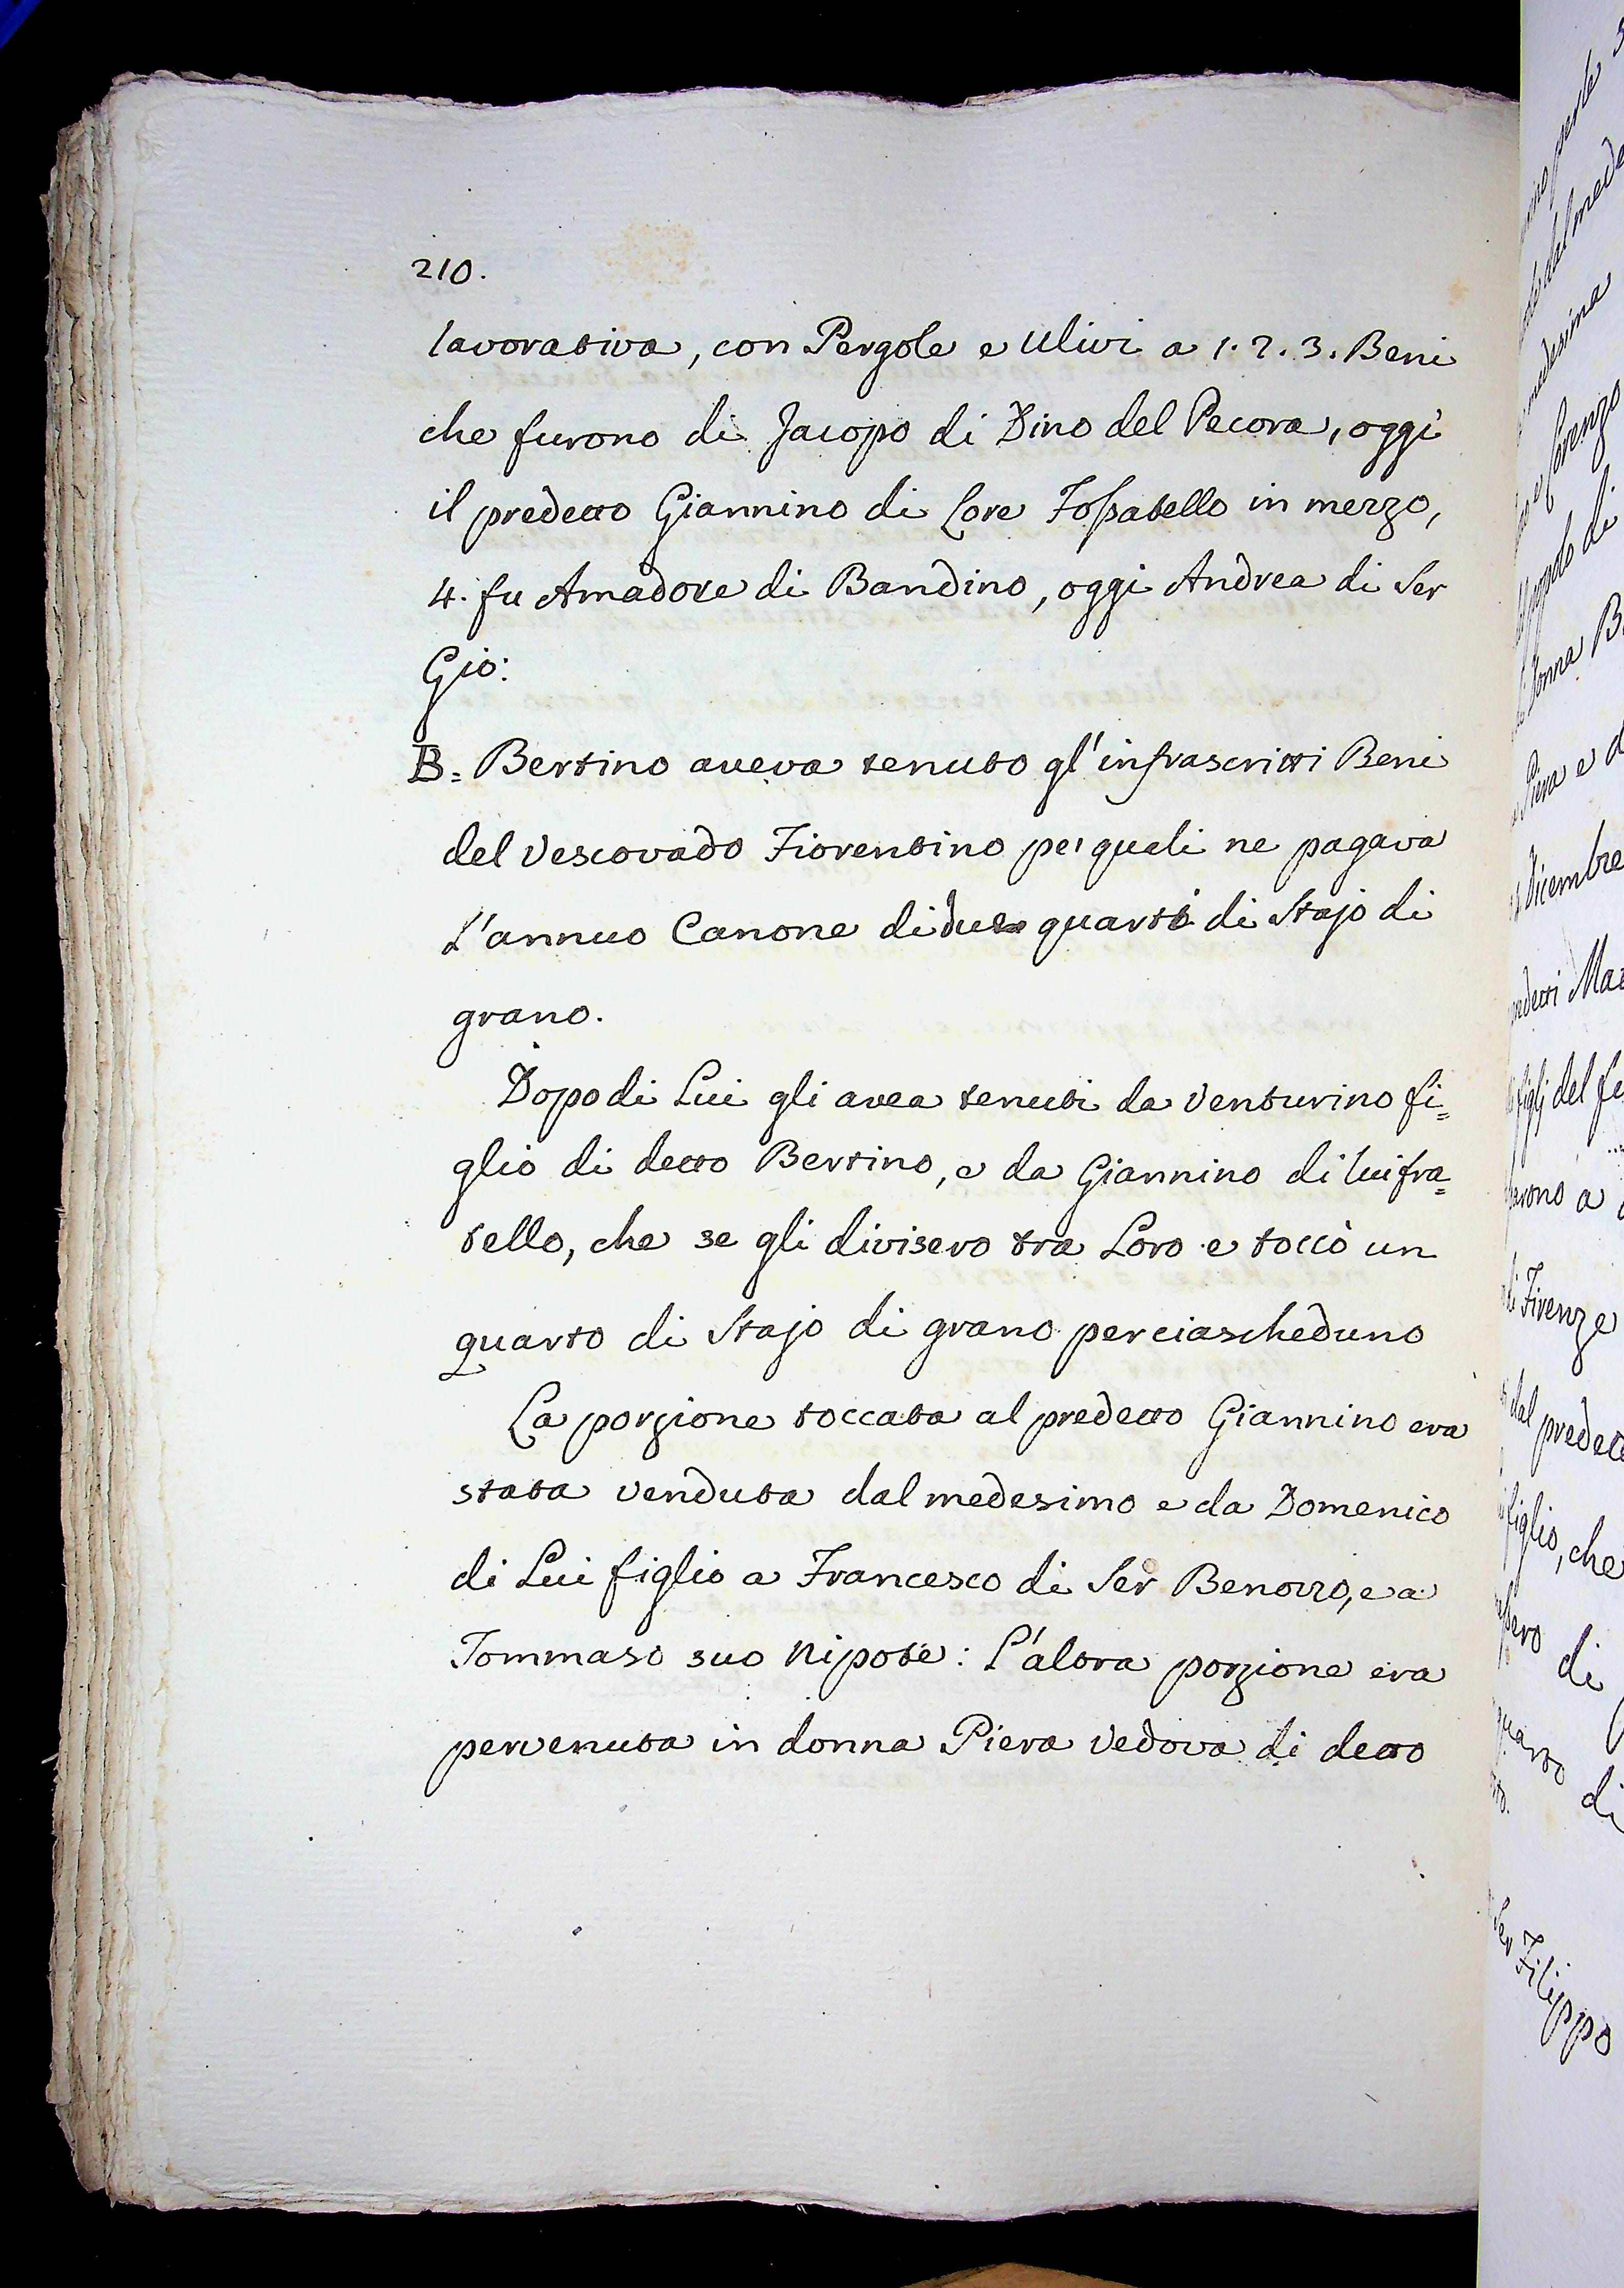 210.
lavorativa, con Pergole e Ulivi a 1. 2. 3. Beni
che furono di Jacopo di Dino del Pecora, oggi
il predetto Giannino di Lore Fossatello in mezzo,
4. fu Amadore di Bandino, oggi Andrea di Ser
Gio:
B= Bertino aveva tenuto gl'infrascritti Beni
del Vescovado Fiorentino pe' quali ne pagava
L'annuo Canone di due quarti di Stajo di
grano.
Dopo di Lui gli avea tenuti da Venturino fi=
glio di detto Bertino, e da Giannino di lui fra=
tello, che se gli divisero tra Loro e toccò un
quarto di Stajo di grano per ciascheduno
La porzione toccata al predetto Giannino era
stata venduta dal medesimo e da Domenico
di Lui figlio a Francesco di Ser Benozzo, e a
Tommaso suo Nipote: L'altra porzione era
pervenuta in donna Piera Vedova di detto
dal mede
medesima
e Lorenzo
popolo di
donna B
Piera e d
dicembre
Ma
figlj del fu
a
di Firenze
dal predett
figlio, che
di
quarto di
Ser Filippo